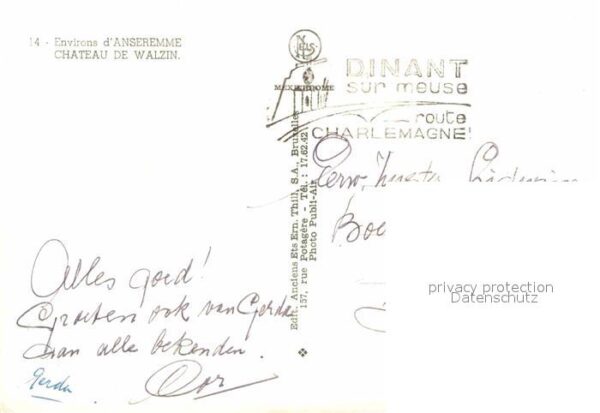 14 - Environs d'ANSEREMME
CHATEAU DE WALZIN.
NELS
MEUSE DOME
DINANT
sur meuse
route
CHARLEMAGNE!
Edit. Anciens Ets Ern. Thill, S.A., Bruxelles
157, rue Potagère - Tél. : 17.62.42
Photo Publi-Air
Eerw. Zuster
Boe
privacy protection
Datenschutz
Alles goed!
Groeten ook van Gerda
aan alle bekenden.
Gerda